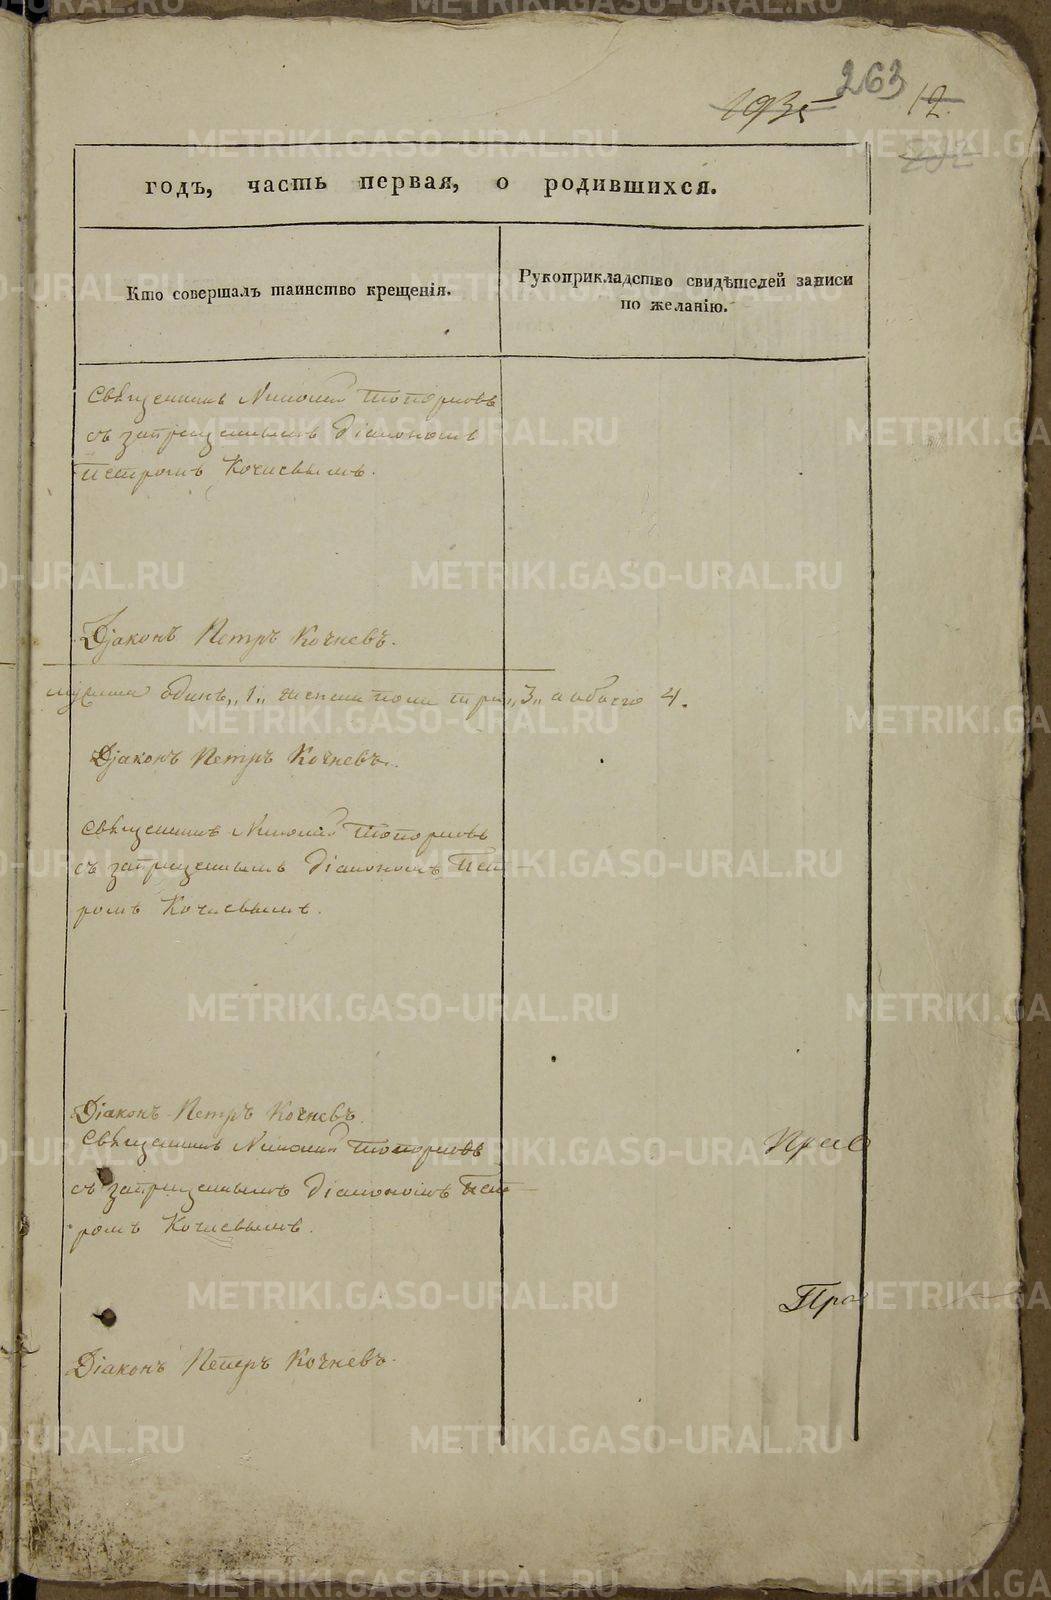 263
1935 12.
годъ, часть первая, о родившихся.
Кто совершалъ таинство крещенія.
Рукоприкладство свидѣтелей записи
по желанію.
Священникъ Николай Топорковъ
съ запрещеннымъ діакономъ
Петромъ Кочневымъ.
Діаконъ Петръ Кочневъ.
мужеска одинъ „1„ женска пола три „3„ а обоего 4.
Діаконъ Петръ Кочневъ.
Священникъ Николай Топорковъ
съ запрещеннымъ діакономъ Пет-
ромъ Кочневымъ.
Діаконъ Петръ Кочневъ.
Священникъ Николай Топорковъ
съ запрещеннымъ діакономъ Пет-
ромъ Кочневымъ.
Пра
Діаконъ Петръ Кочневъ.
METRIKI.GASO-URAL.RU